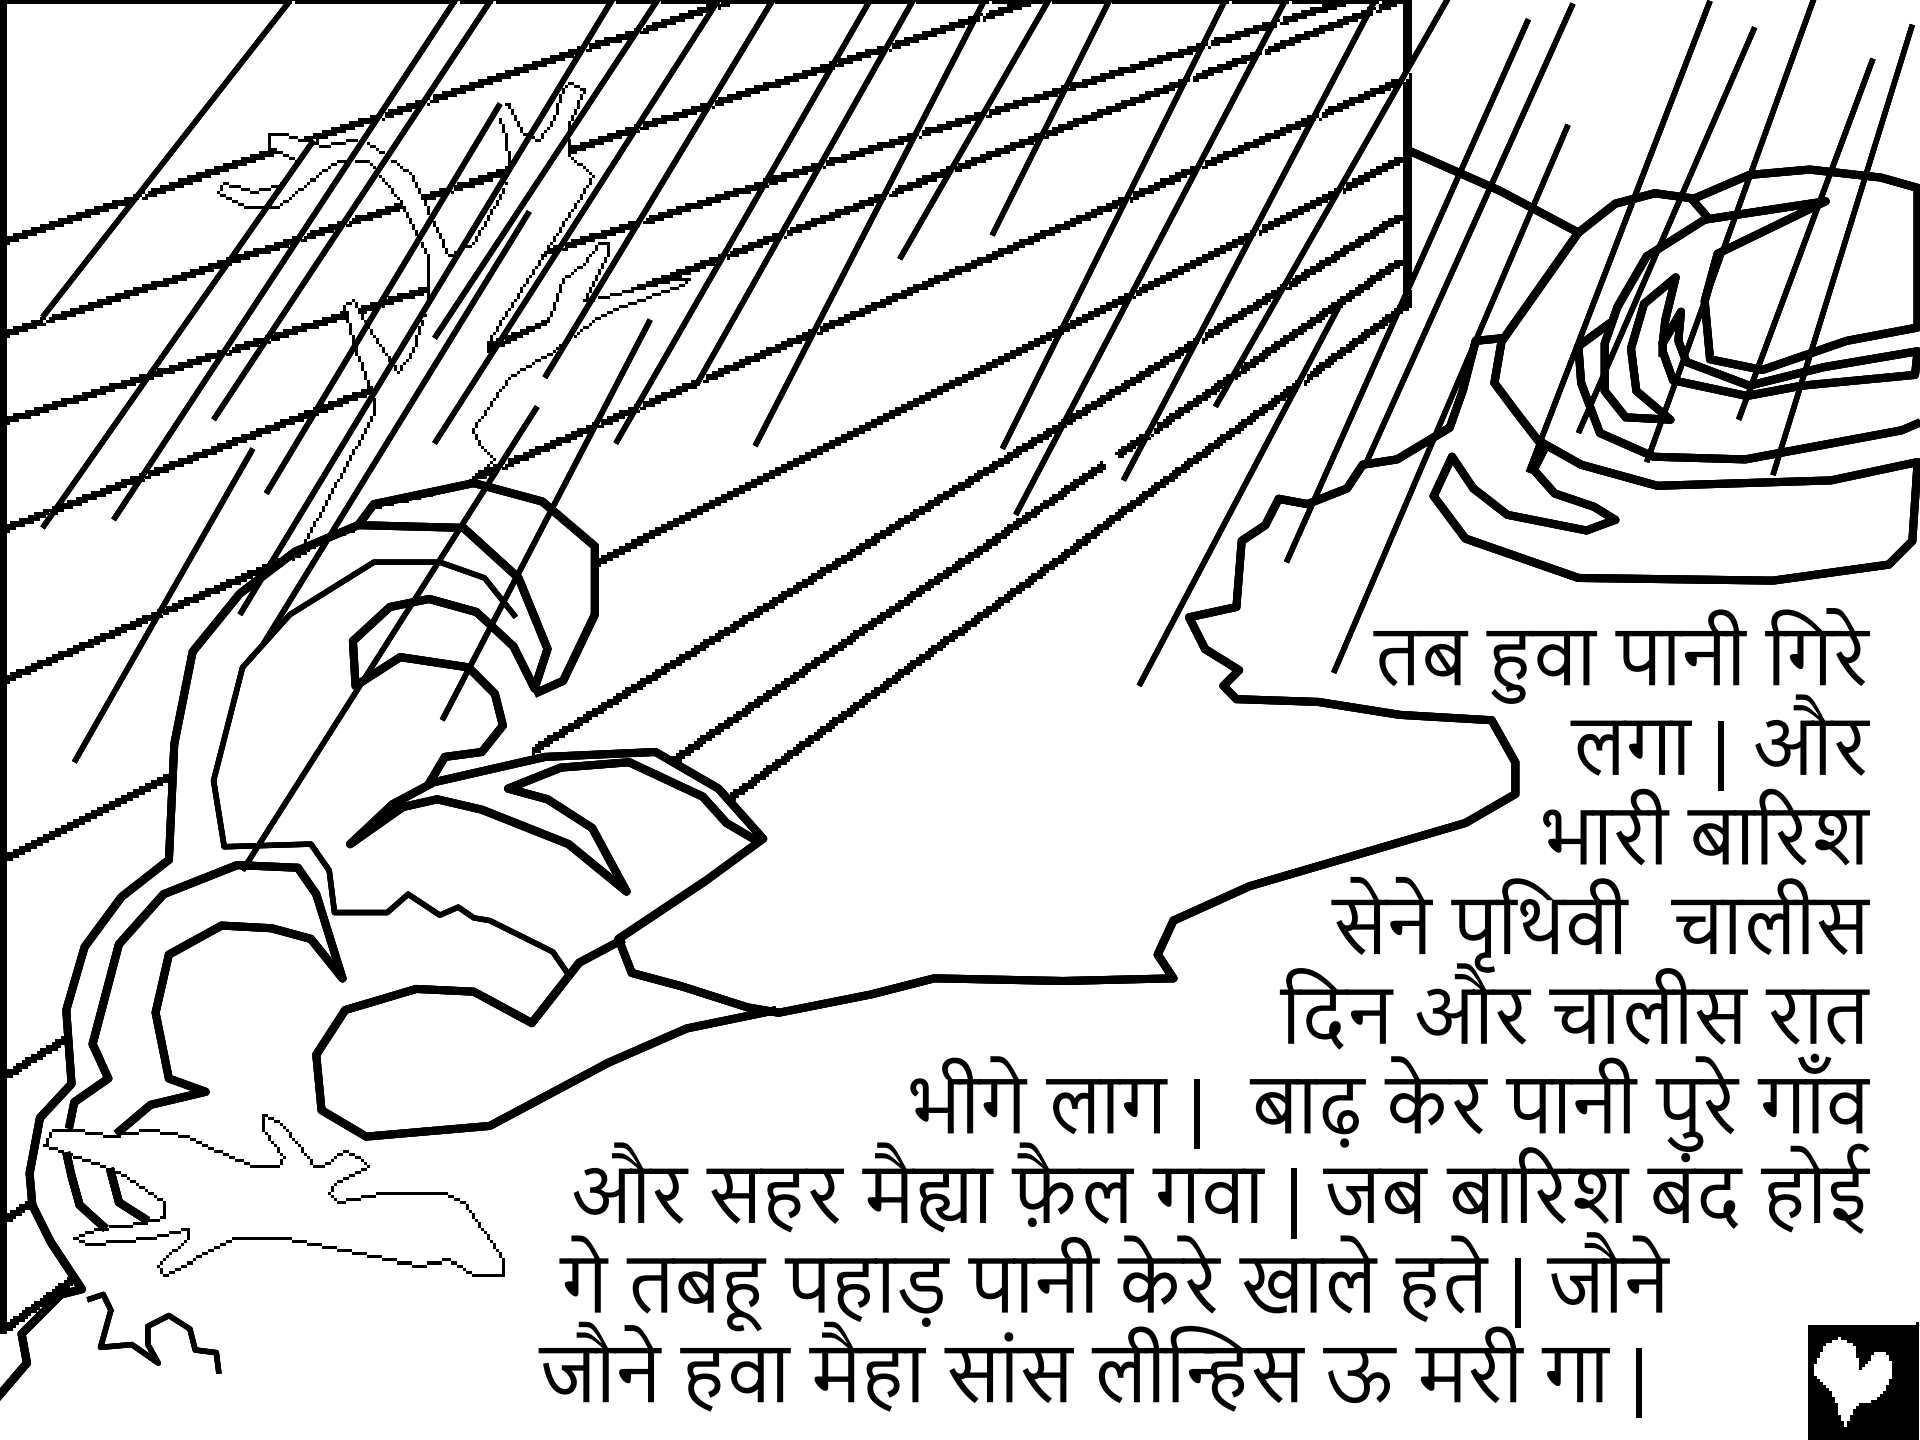 तब हुवा पानी गिरे
लगा | और
भारी बारिश
सेने पृथिवी चालीस
दिन और चालीस रात
भीगे लाग | बाढ़ केर पानी पुरे गाँव
और सहर मैह्या फ़ैल गवा | जब बारिश बंद होई
गे तबहू पहाड़ पानी केरे खाले हते | जौने
जौने हवा मैहा सांस लीन्हिस ऊ मरी गा |